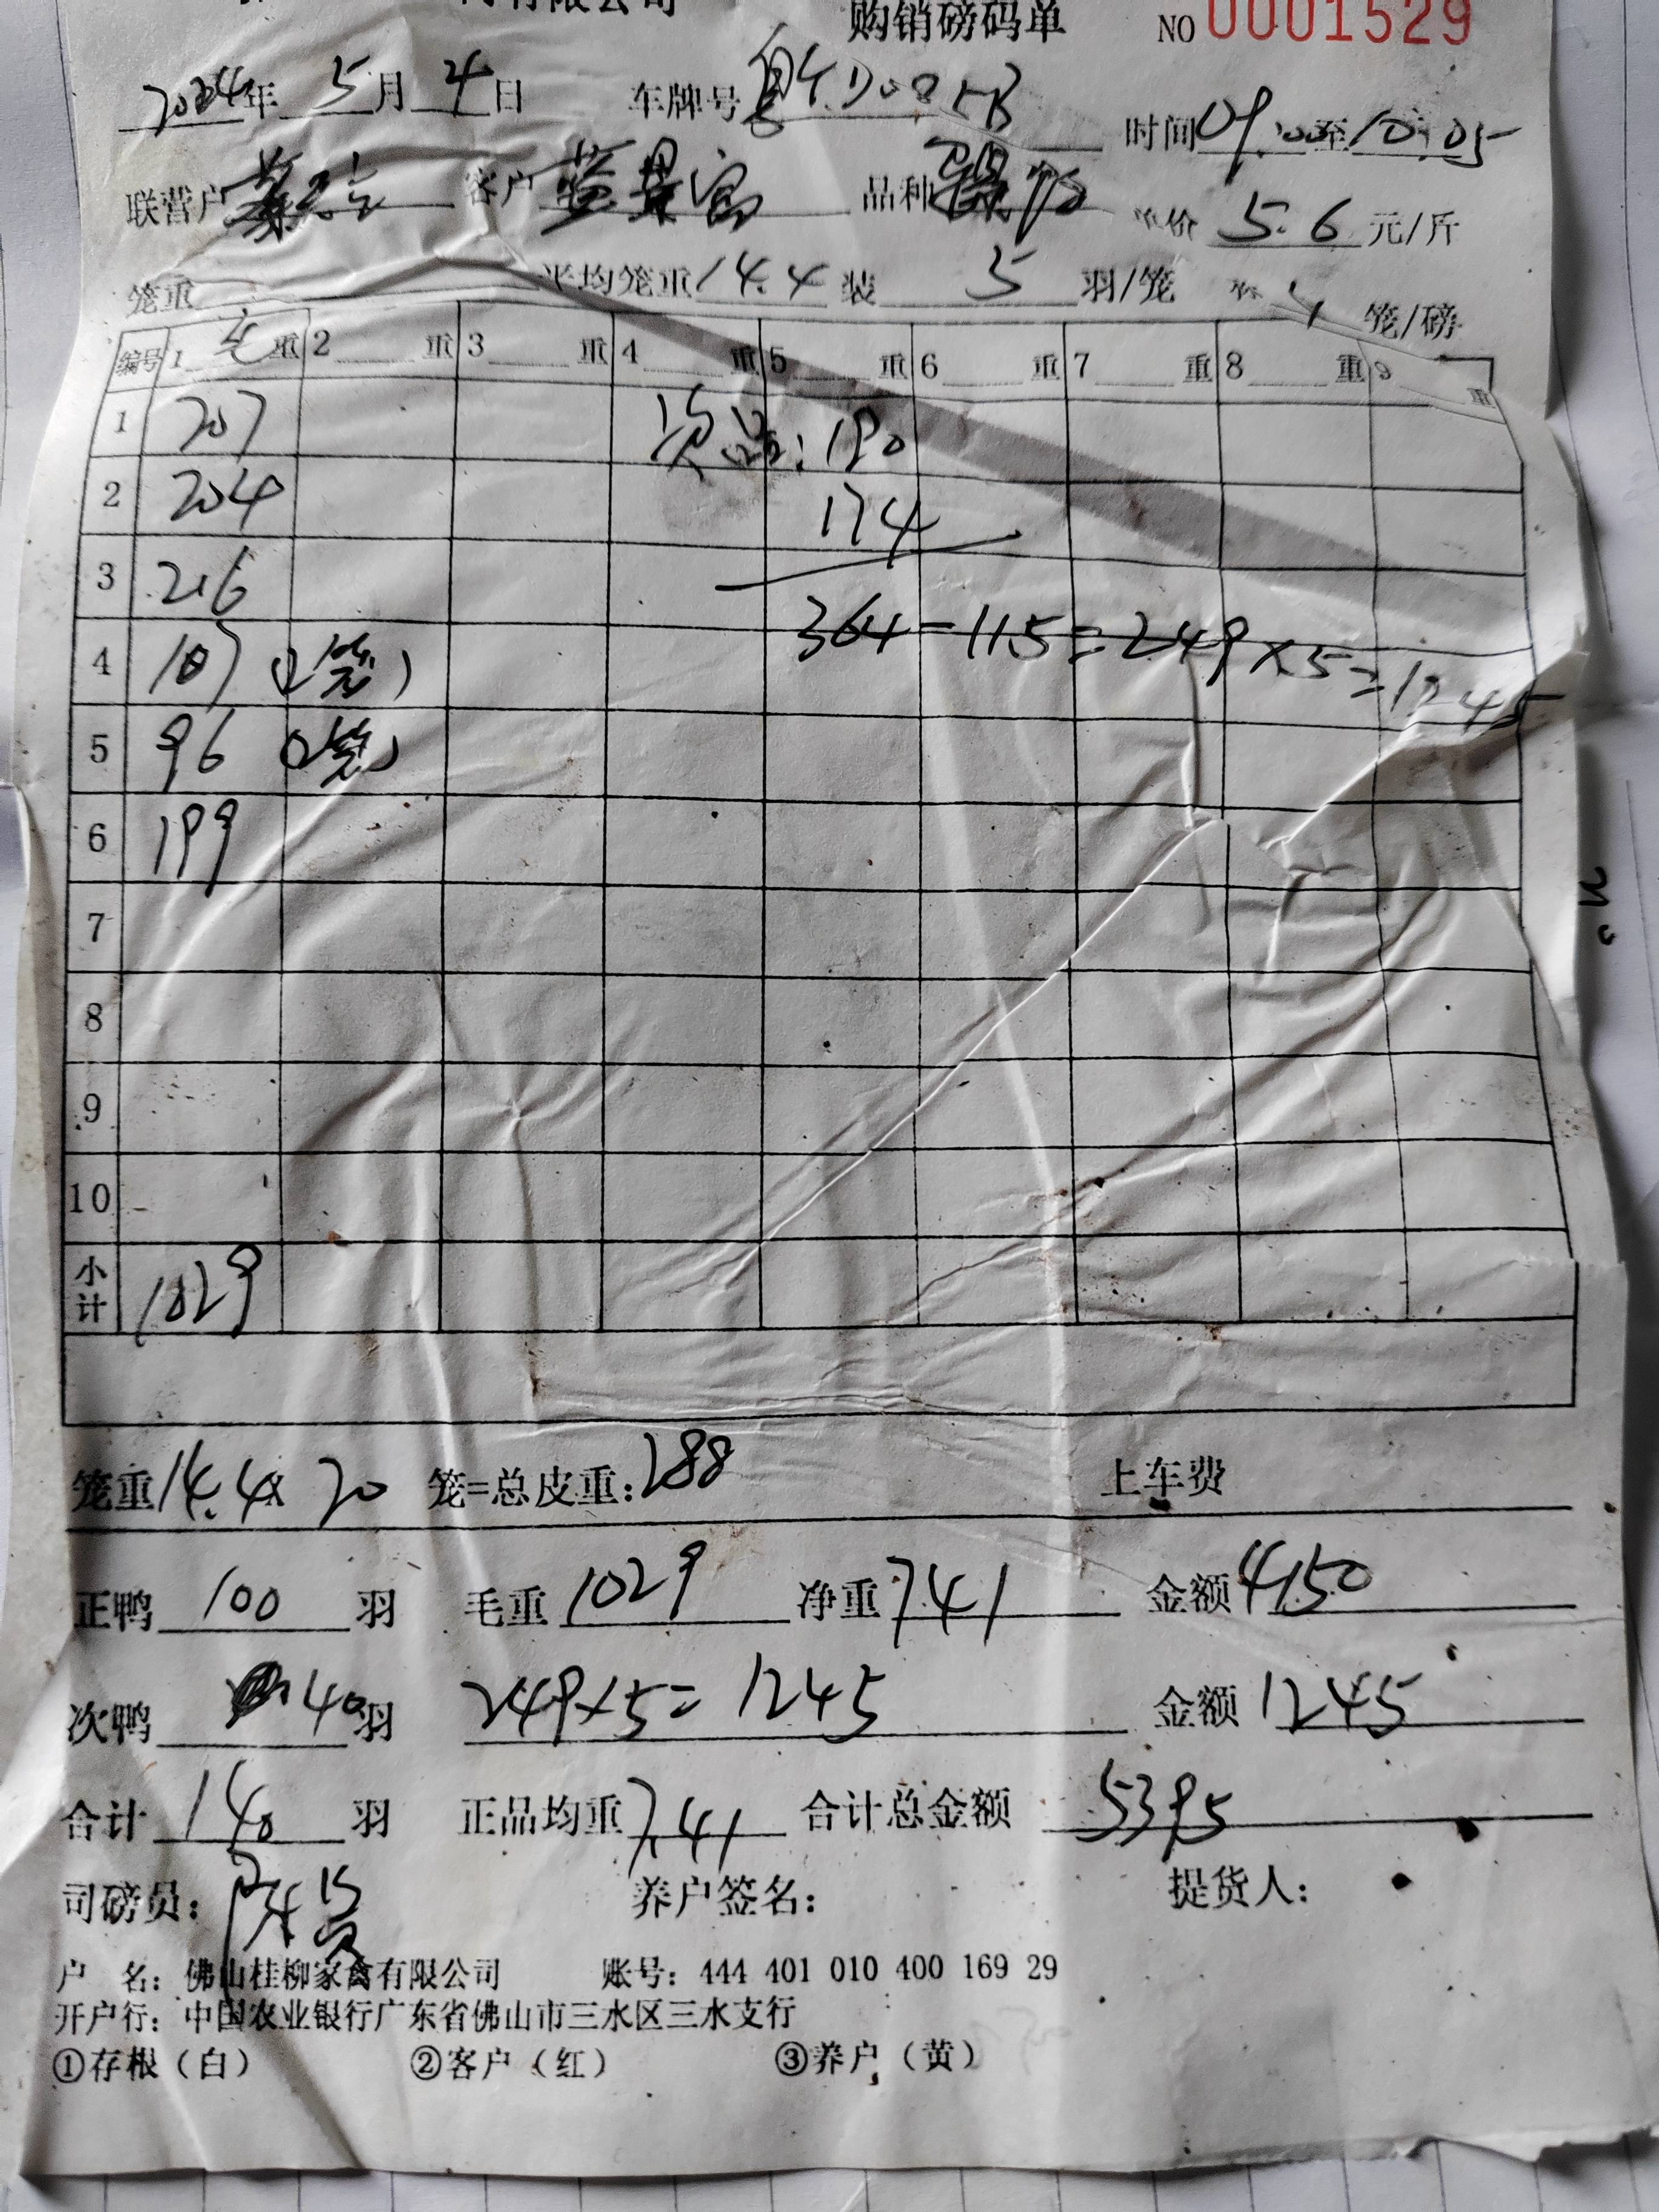 有限公司 购销磅码单 NO 0001529
2024年 5月 4日 车牌号 时间 09:00至10:05
联营户 客户 蓝景富 品种 单价 5.6 元/斤
笼重 平均笼重 14.4 装 5 羽/笼 称 4 笼/磅
编号 1 毛 重 2 重 3 重 4 重 5 重 6 重 7 重 8 重 9 重
1 207 次品:190
2 204 174
3 216
364-115=249×5=1245
4 107 (2笼)
5 96 (2笼)
6 199
7
8
9
10
小计 1029
笼重 14.4× 20 笼=总皮重: 288 上车费
正鸭 100 羽 毛重 1029 净重 741 金额 4150
次鸭 40 羽 249×5= 1245 金额 1245
合计 140 羽 正品均重 7.41 合计总金额 5395
司磅员: 养户签名: 提货人:
户 名: 佛山桂柳家禽有限公司 账号: 444 401 010 400 169 29
开户行: 中国农业银行广东省佛山市三水区三水支行
①存根(白) ②客户(红) ③养户(黄)